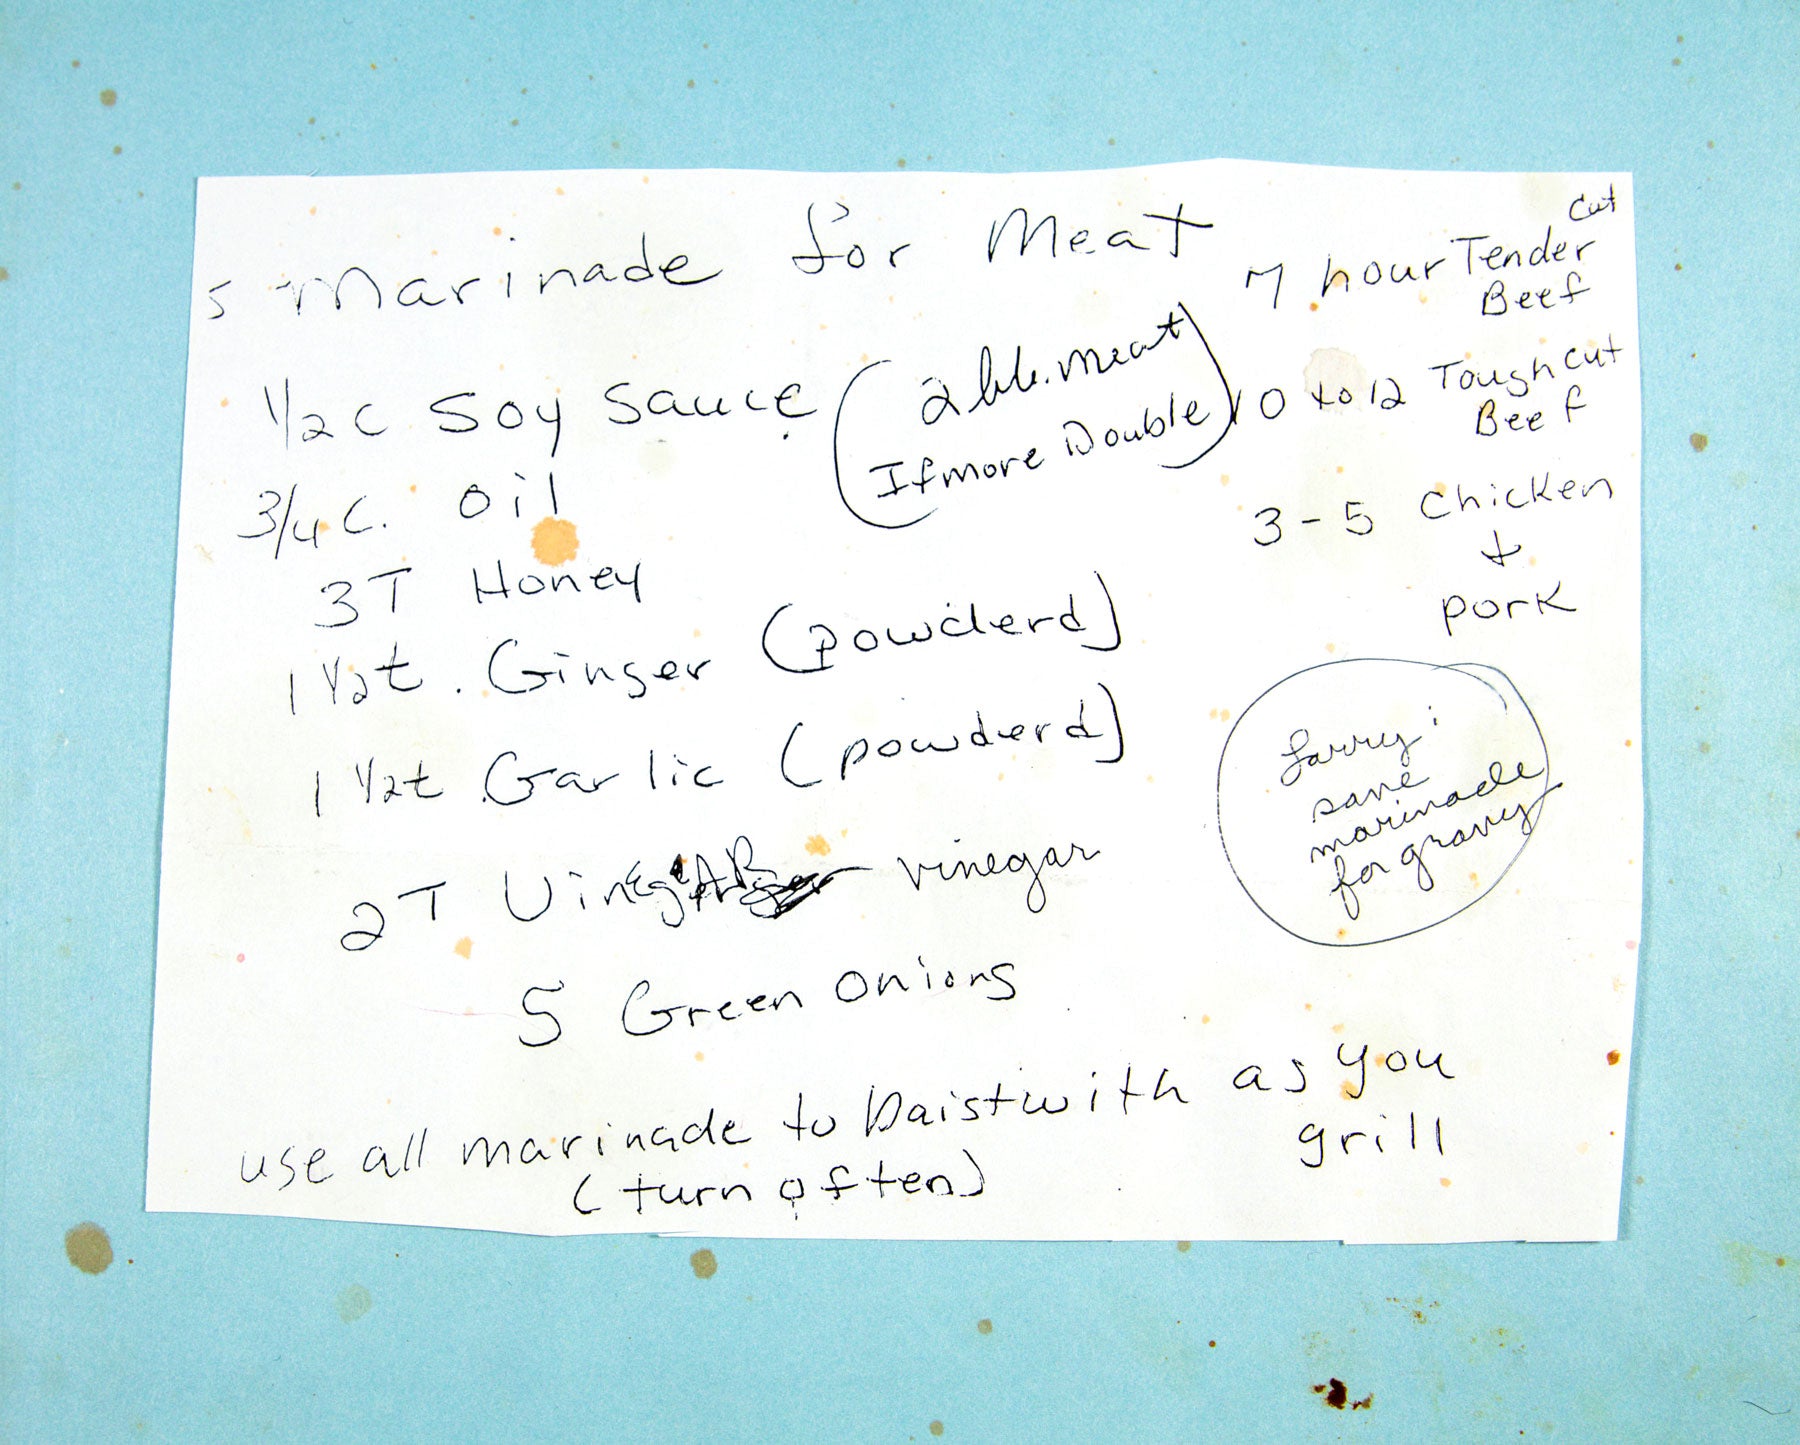 5 Marinade for Meat
1/2 C Soy Sauce
(2 lb. meat
If more Double)
3/4 C. Oil
3T Honey
1 1/2 t. Ginger (powderd)
1 1/2 t Garlic (powderd)
2T VinEgAR vinegar
5 Green Onions
use all marinade to baistwith as you
grill
(turn often)
7 hour Tender Cut
Beef
10 to 12 Tough cut
Beef
3-5 Chicken
+
pork
Larry:
save
marinade
for gravy